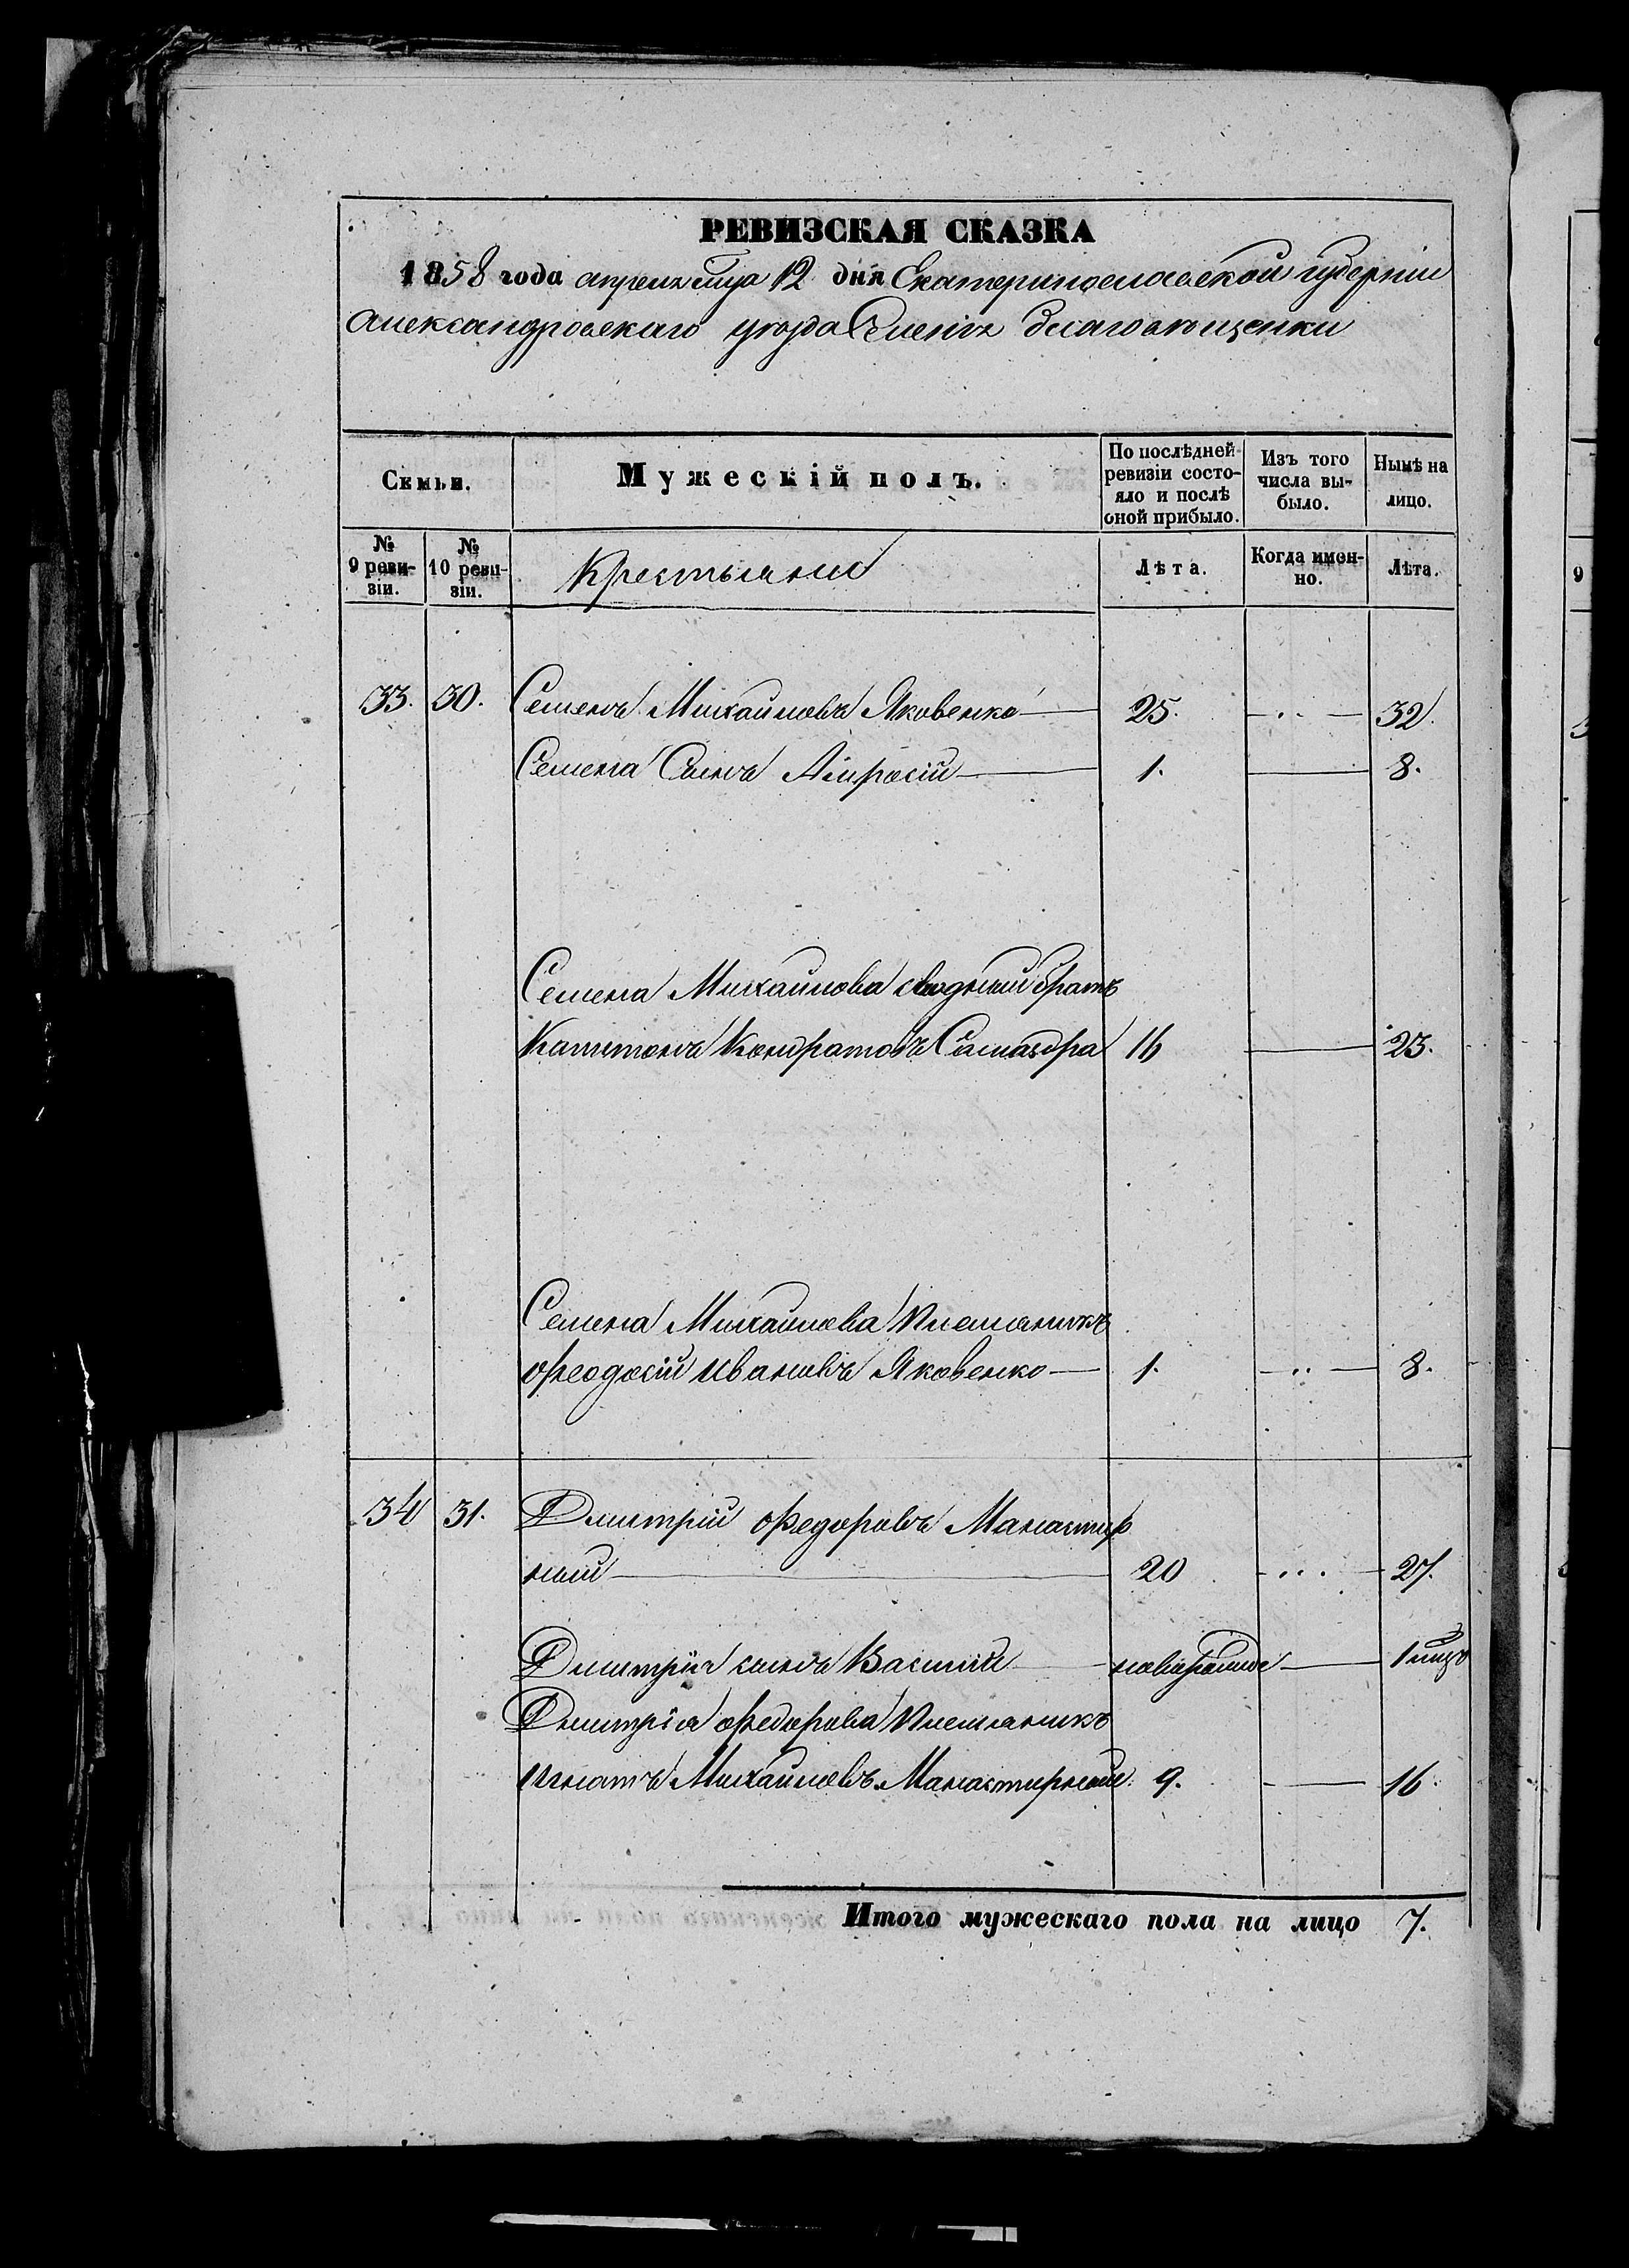 РЕВИЗСКАЯ СКАЗКА
1858 года апреля мца 12 дня Екатеринославской губернии
Александровского уезда Благовещенки
Семьи. Мужескій полъ. По послѣдней ревизіи состояло и послѣ оной прибыло. Изъ того числа выбыло. Нынѣ на лицо.
№ 9 ревизіи. № 10 ревизіи. Крестьяние Лѣта. Когда именно. Лѣта.
33. 30. Семенъ Михайловъ Яковенко 25. 32.
Семена Сынъ Амвросій 1. 8.
Семена Михайлова сводный братъ
Капитонъ Кондратовъ 16 23.
Семена Михайлова Племяникъ
Феодосій Ивановъ Яковенко 1. 8.
34 31. Дмитрій Федоровъ Манастир
ный 20 27.
Дмитрія сынъ Василій новорожден 1 мцъ
Дмитрія Федорова Племяникъ
Игнатъ Михайловъ Манастирный 9. 16.
Итого мужескаго пола на лицо 7.